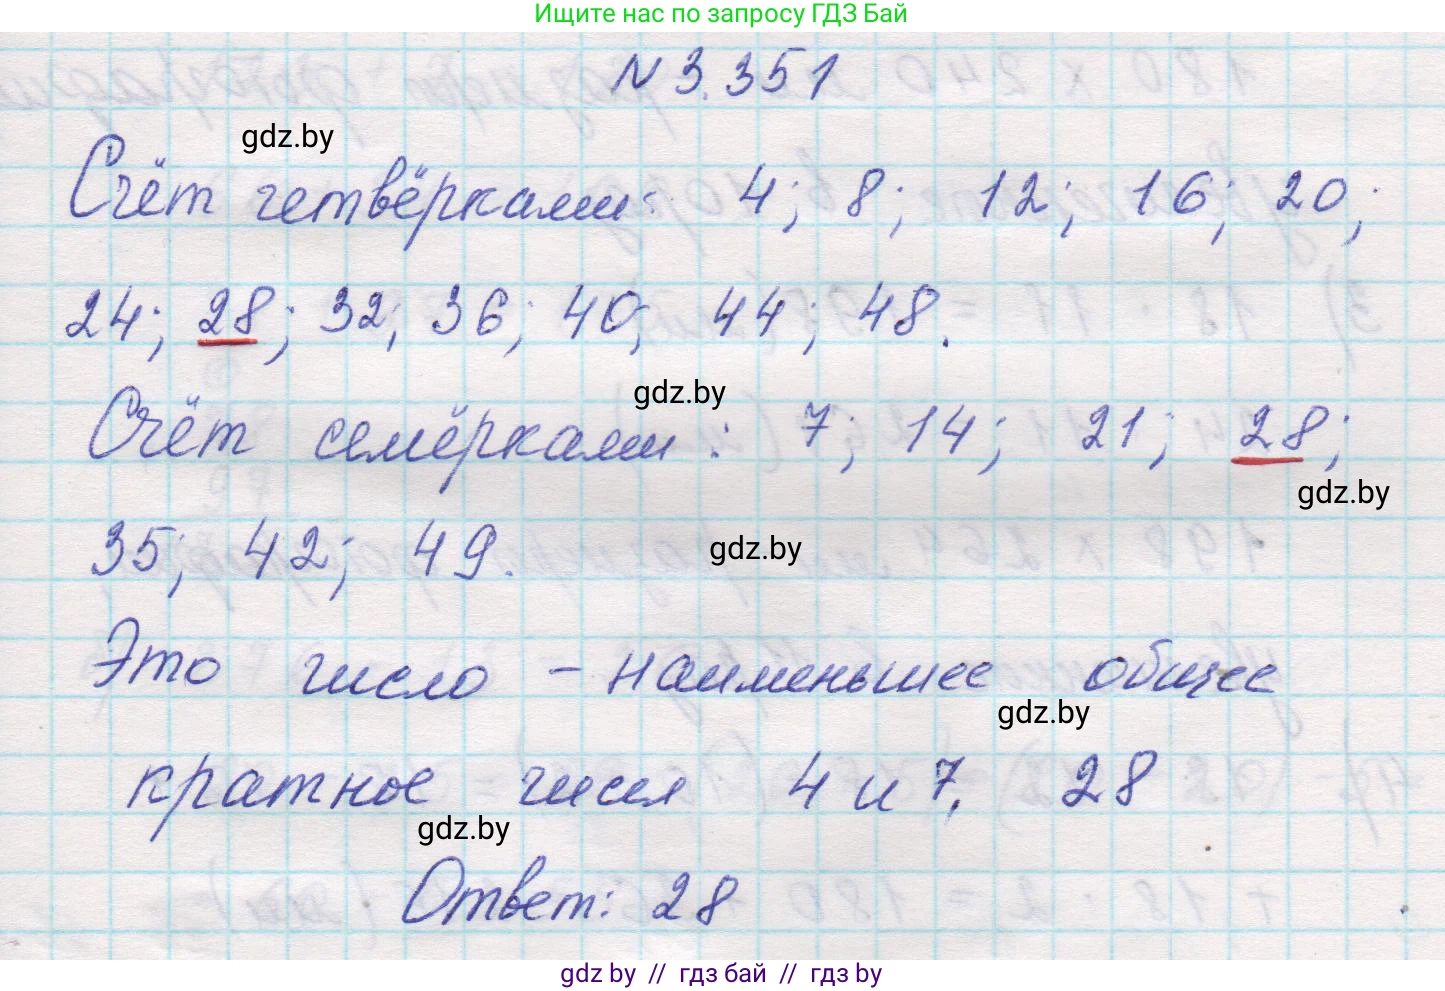 Ищите нас по запросу ГДЗ Бай
N 3.351
gdz.by
Счёт четвёрками: 4; 8; 12; 16; 20;
24; 28; 32; 36; 40; 44; 48.
gdz.by
Счёт семёрками: 7; 14; 21; 28;
gdz.by
35; 42; 49.
gdz.by
Это число – наименьшее общее
gdz.by
кратное чисел 4 и 7. 28
gdz.by
Ответ: 28
gdz by // гдз бай // гдз by